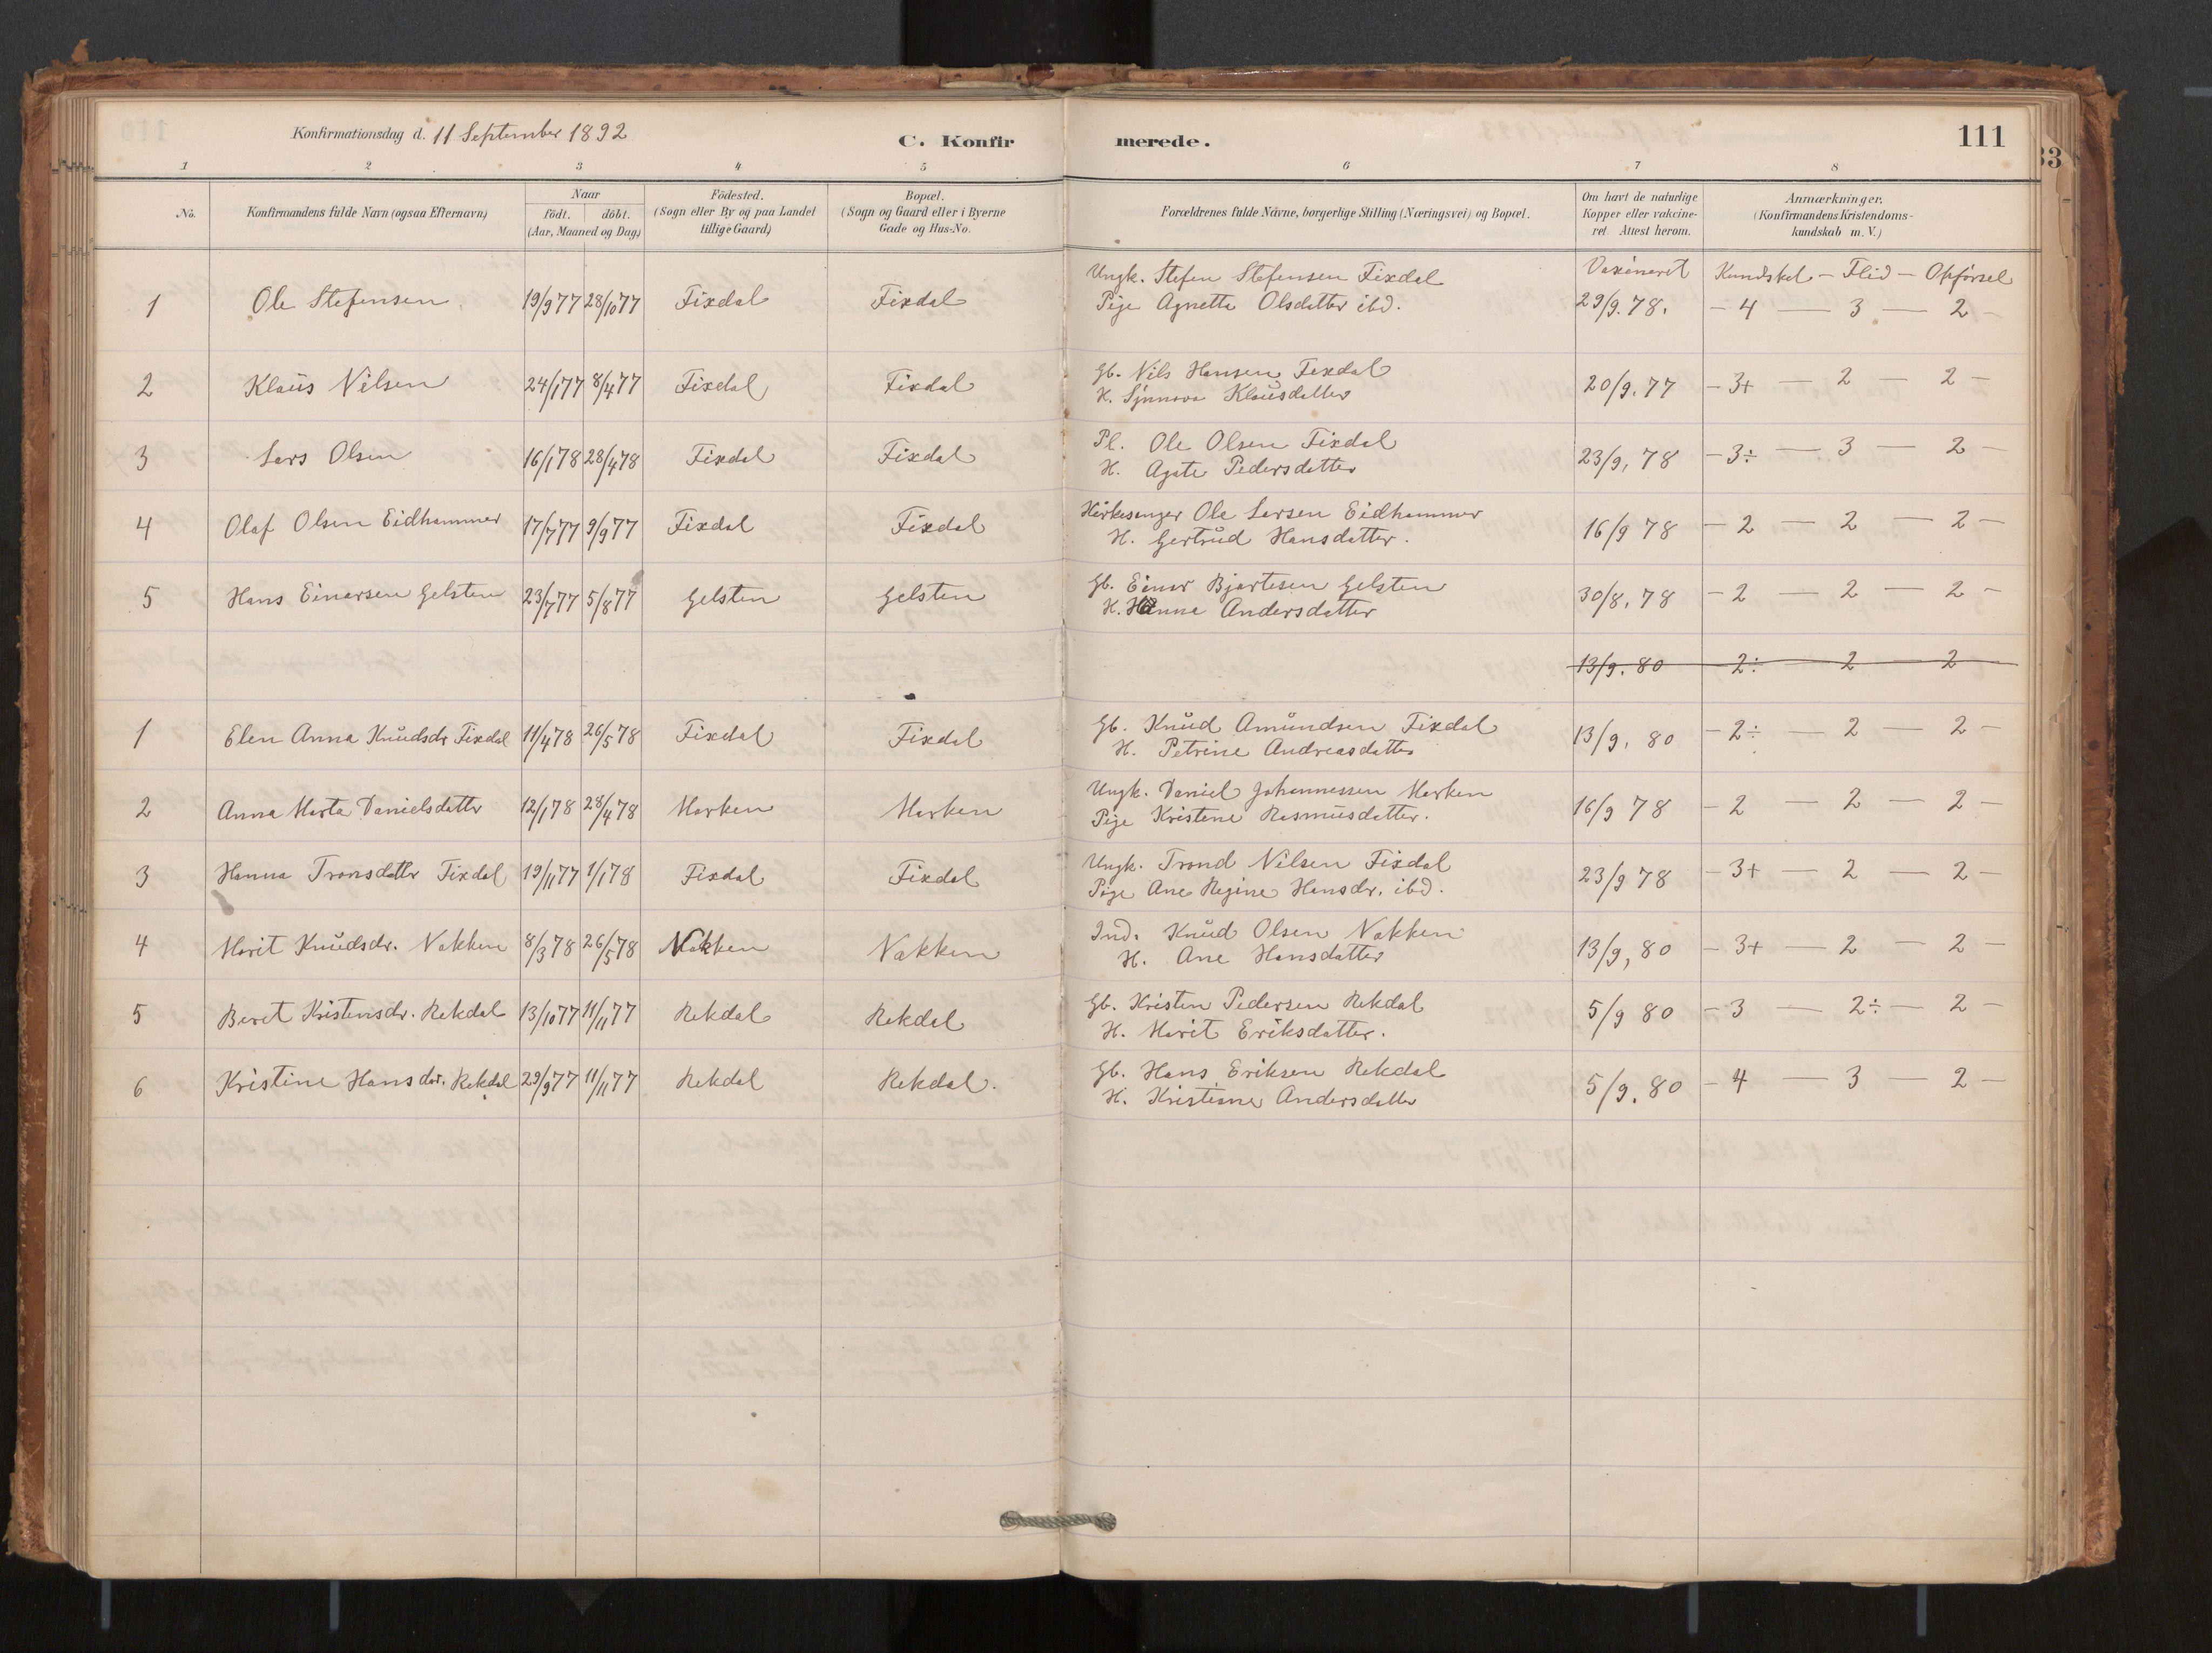 Konfirmationsdag d. 11 September 1892
C. Konfirmerede.
111
33
1 2 3 4 5 6 7 8
No. | Konfirmandens fulde Navn (ogsaa Efternavn) | Naar födt. | döbt. (Aar, Maaned og Dag) | Födested. (Sogn eller By og paa Landet tillige Gaard) | Bopæl. (Sogn og Gaard eller i Byerne Gade og Hus-No. | Forældrenes fulde Navne, borgerlige Stilling (Næringsvei) og Bopæl. | Om havt de naturlige Kopper eller vakcineret Attest herom. | Anmærkninger. (Konfirmandens Kristendomskundskab m. V.)
Vaxineret | Kundskab – Flid – Opførsel
1 | Ole Stefensen | 19/9 77 | 28/10 77 | Fixdal | Fixdal | Ungk. Stefen Stefensen Fixdal
Pige Agnetta Olsdatter ibd. | 29/9. 78. | – 4 — 3 — 2 –
2 | Klaus Nilsen | 24/1 77 | 8/4 77 | Fixdal | Fixdal | Gb. Nils Hansen Fixdal
H. Synnova Klausdatter | 20/9. 77 | – 3+ — 2 — 2 –
3 | Lars Olsen | 16/1 78 | 28/4 78 | Fixdal | Fixdal | Pl. Ole Olsen Fixdal
H. Agate Pedersdatter | 23/9, 78 | – 3÷ — 3 — 2 –
4 | Olaf Olsen Eidhammer | 17/7 77 | 9/9 77 | Fixdal | Fixdal | Kirkesanger Ole Larsen Eidhammer
H. Gertrud Hansdatter. | 16/9 78 | – 2 — 2 — 2 –
5 | Hans Einarsen Gelsten | 23/7 77 | 5/8 77 | Gelsten | Gelsten | Gb. Einar Bjartesen Gelsten
H. Hanna Andersdatter | 30/8, 78 | – 2 — 2 — 2 –
13/9. 80 | 2÷ — 2 — 2
1 | Elen Anna Knudsdr Fixdal | 11/4 78 | 26/5 78 | Fixdal | Fixdal | Gb. Knud Amundsen Fixdal
H. Petrine Andreasdatter | 13/9, 80 | – 2÷ — 2 — 2 –
2 | Anna Marta Danielsdatter | 12/1 78 | 28/4 78 | Harken | Harken | Ungk. Daniel Johannessen Harken
Pige Kristene Rasmusdatter. | 16/9 78 | – 2 — 2 — 2 –
3 | Hanna Tronsdatter Fixdal | 19/11 77 | 1/1 78 | Fixdal | Fixdal | Ungk. Trond Nilsen Fixdal
Pige Ane Regine Hansdr. ibd. | 23/9 78 | – 3+ — 2 — 2 –
4 | Marit Knudsdr. Nakken | 8/3 78 | 26/5 78 | Nakken | Nakken | Ind. Knud Olsen Nakken
H. Ane Hansdatter | 13/9, 80 | – 3+ — 2 – 2 –
5 | Berit Kristensdr. Rekdal | 13/10 77 | 11/11 77 | Rekdal | Rekdal | Gb. Kristen Pedersen Rekdal
H. Marit Eriksdatter. | 5/9 80 | – 3 — 2÷ – 2 –
6 | Kristine Hansdr. Rekdal | 29/9 77 | 11/11 77 | Rekdal | Rekdal. | Gb. Hans Eriksen Rekdal
H. Kristine Andersdatter | 5/9. 80 | – 4 — 3 — 2 –